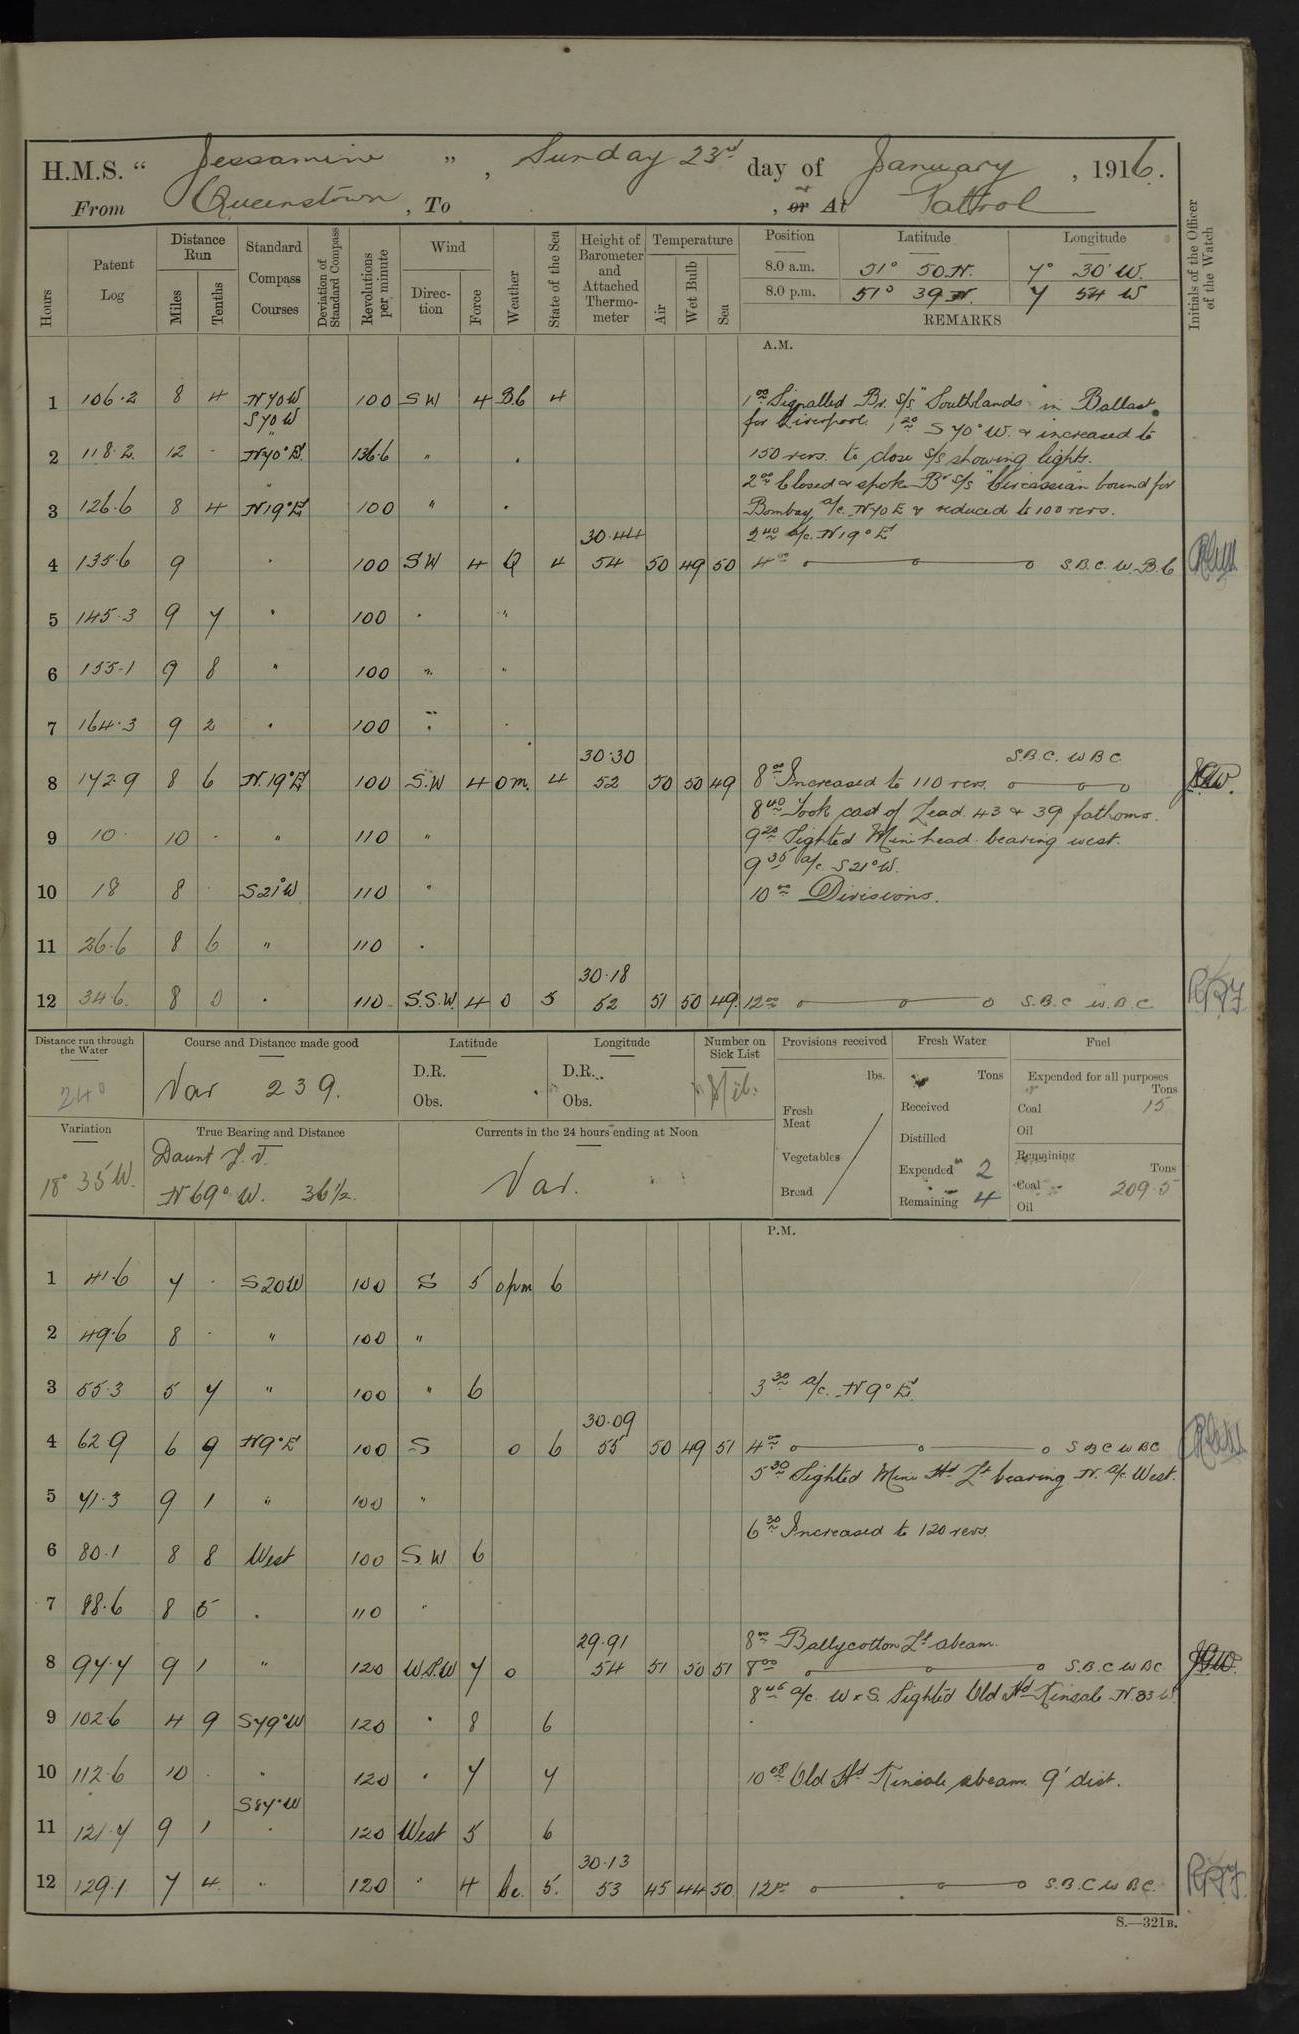 H.M.S. “ Jessamine ”, Sunday 23rd day of January, 1916.
From Queenstown, To , or At Pattrol
Hours
Patent Log
Distance Run
Miles
Tenths
Standard Compass Courses
Deviation of Standard Compass
Revolutions per minute
Wind
Direction
Force
Weather
State of the Sea
Height of Barometer and Attached Thermometer
Temperature
Air
Wet Bulb
Sea
Position Latitude Longitude
8.0 a.m. 51° 50 N. 7° 30' W.
8.0 p.m. 51° 39 N. 7 54 W
REMARKS
Initials of the Officer of the Watch
A.M.
1 106.2 8 4 N70W 100 SW 4 Bb 4 1 00 Signalled Br. S/S "Southlands" in Ballast
S70W for Liverpool. 1 20 S 70° W. & increased to
2 118.2 12 - N70°E. 136.6 " 150 revs. to close S/S showing lights.
2 00 Closed & spoke Br S/S "Circassian" bound for
3 126.6 8 4 N19°E 100 " Bombay a/c. N70E & reduced to 100 revs.
30.44 2 40 a/c. N19°E
4 135.6 9 100 SW 4 4 54 50 49 50 4 00 S.B.C. W.B.C
5 145.3 9 7 100 "
6 155.1 9 8 " 100 " "
7 164.3 9 2 100
30.30 S.B.C. W B C
8 172.9 8 6 N.19°E 100 S.W 4 om. 4 52 50 50 49 8 00 Increased to 110 revs.
8 40 Took cast of Lead. 43 & 39 fathoms.
9 10 10 - " 110 " 9 20 Sighted Mine head bearing west.
9 35 a/c S21°W.
10 18 8 S21°W 110 " 10 00 Divisions.
11 26.6 8 6 " 110
30.18
12 34.6 8 0 110 S.S.W. 4 o 5 52 51 50 49 12 00 S.B.C W.B.C.
Distance run through the Water
240
Course and Distance made good
Var 239.
Latitude
D.R.
Obs.
Longitude
D.R.
Obs.
Number on Sick List
Nil.
Provisions received
lbs.
Fresh Meat
Vegetables
Bread
Fresh Water
Tons
Received
Distilled
Expended 2
Remaining 4
Fuel
Expended for all purposes
Tons
Coal 15
Oil
Remaining
Tons
Coal 209.5
Oil
Variation
18° 35 W.
True Bearing and Distance
Daunt L.V.
N69° W. 36½.
Currents in the 24 hours ending at Noon
Var.
P.M.
1 41.6 7 - S20W 100 S 5 opm 6
2 49.6 8 - " 100 "
3 55.3 5 7 " 100 " 6 3 30 a/c. N9°E
30.09
4 62.9 6 9 N9°E 100 S o 6 55 50 49 51 4 00 S B C W B C
5 30 Sighted Mine Hd Lt bearing N. a/c West.
5 71.3 9 1 " 100 "
6 30 Increased to 120 revs.
6 80.1 8 8 West 100 S.W 6
7 88.6 8 5 110 "
29.91 8 00 Ballycotton Lt abeam.
8 97.7 9 1 " 120 W.S.W 7 o 54 51 50 51 8 00 S.B.C W B C
8 45 a/c. W x S. Sighted Old Hd Kinsale N.83 W.
9 102.6 4 9 S79°W 120 8 6
10 112.6 10 120 7 7 10 08 Old Hd Kinsale abeam. 9' dist.
S84°W
11 121.7 9 1 120 West 5 6
30.13
12 129.1 7 4 " 120 " 4 bc. 5. 53 45 44 50 12 00 S.B.C W B.C.
S.—321B.